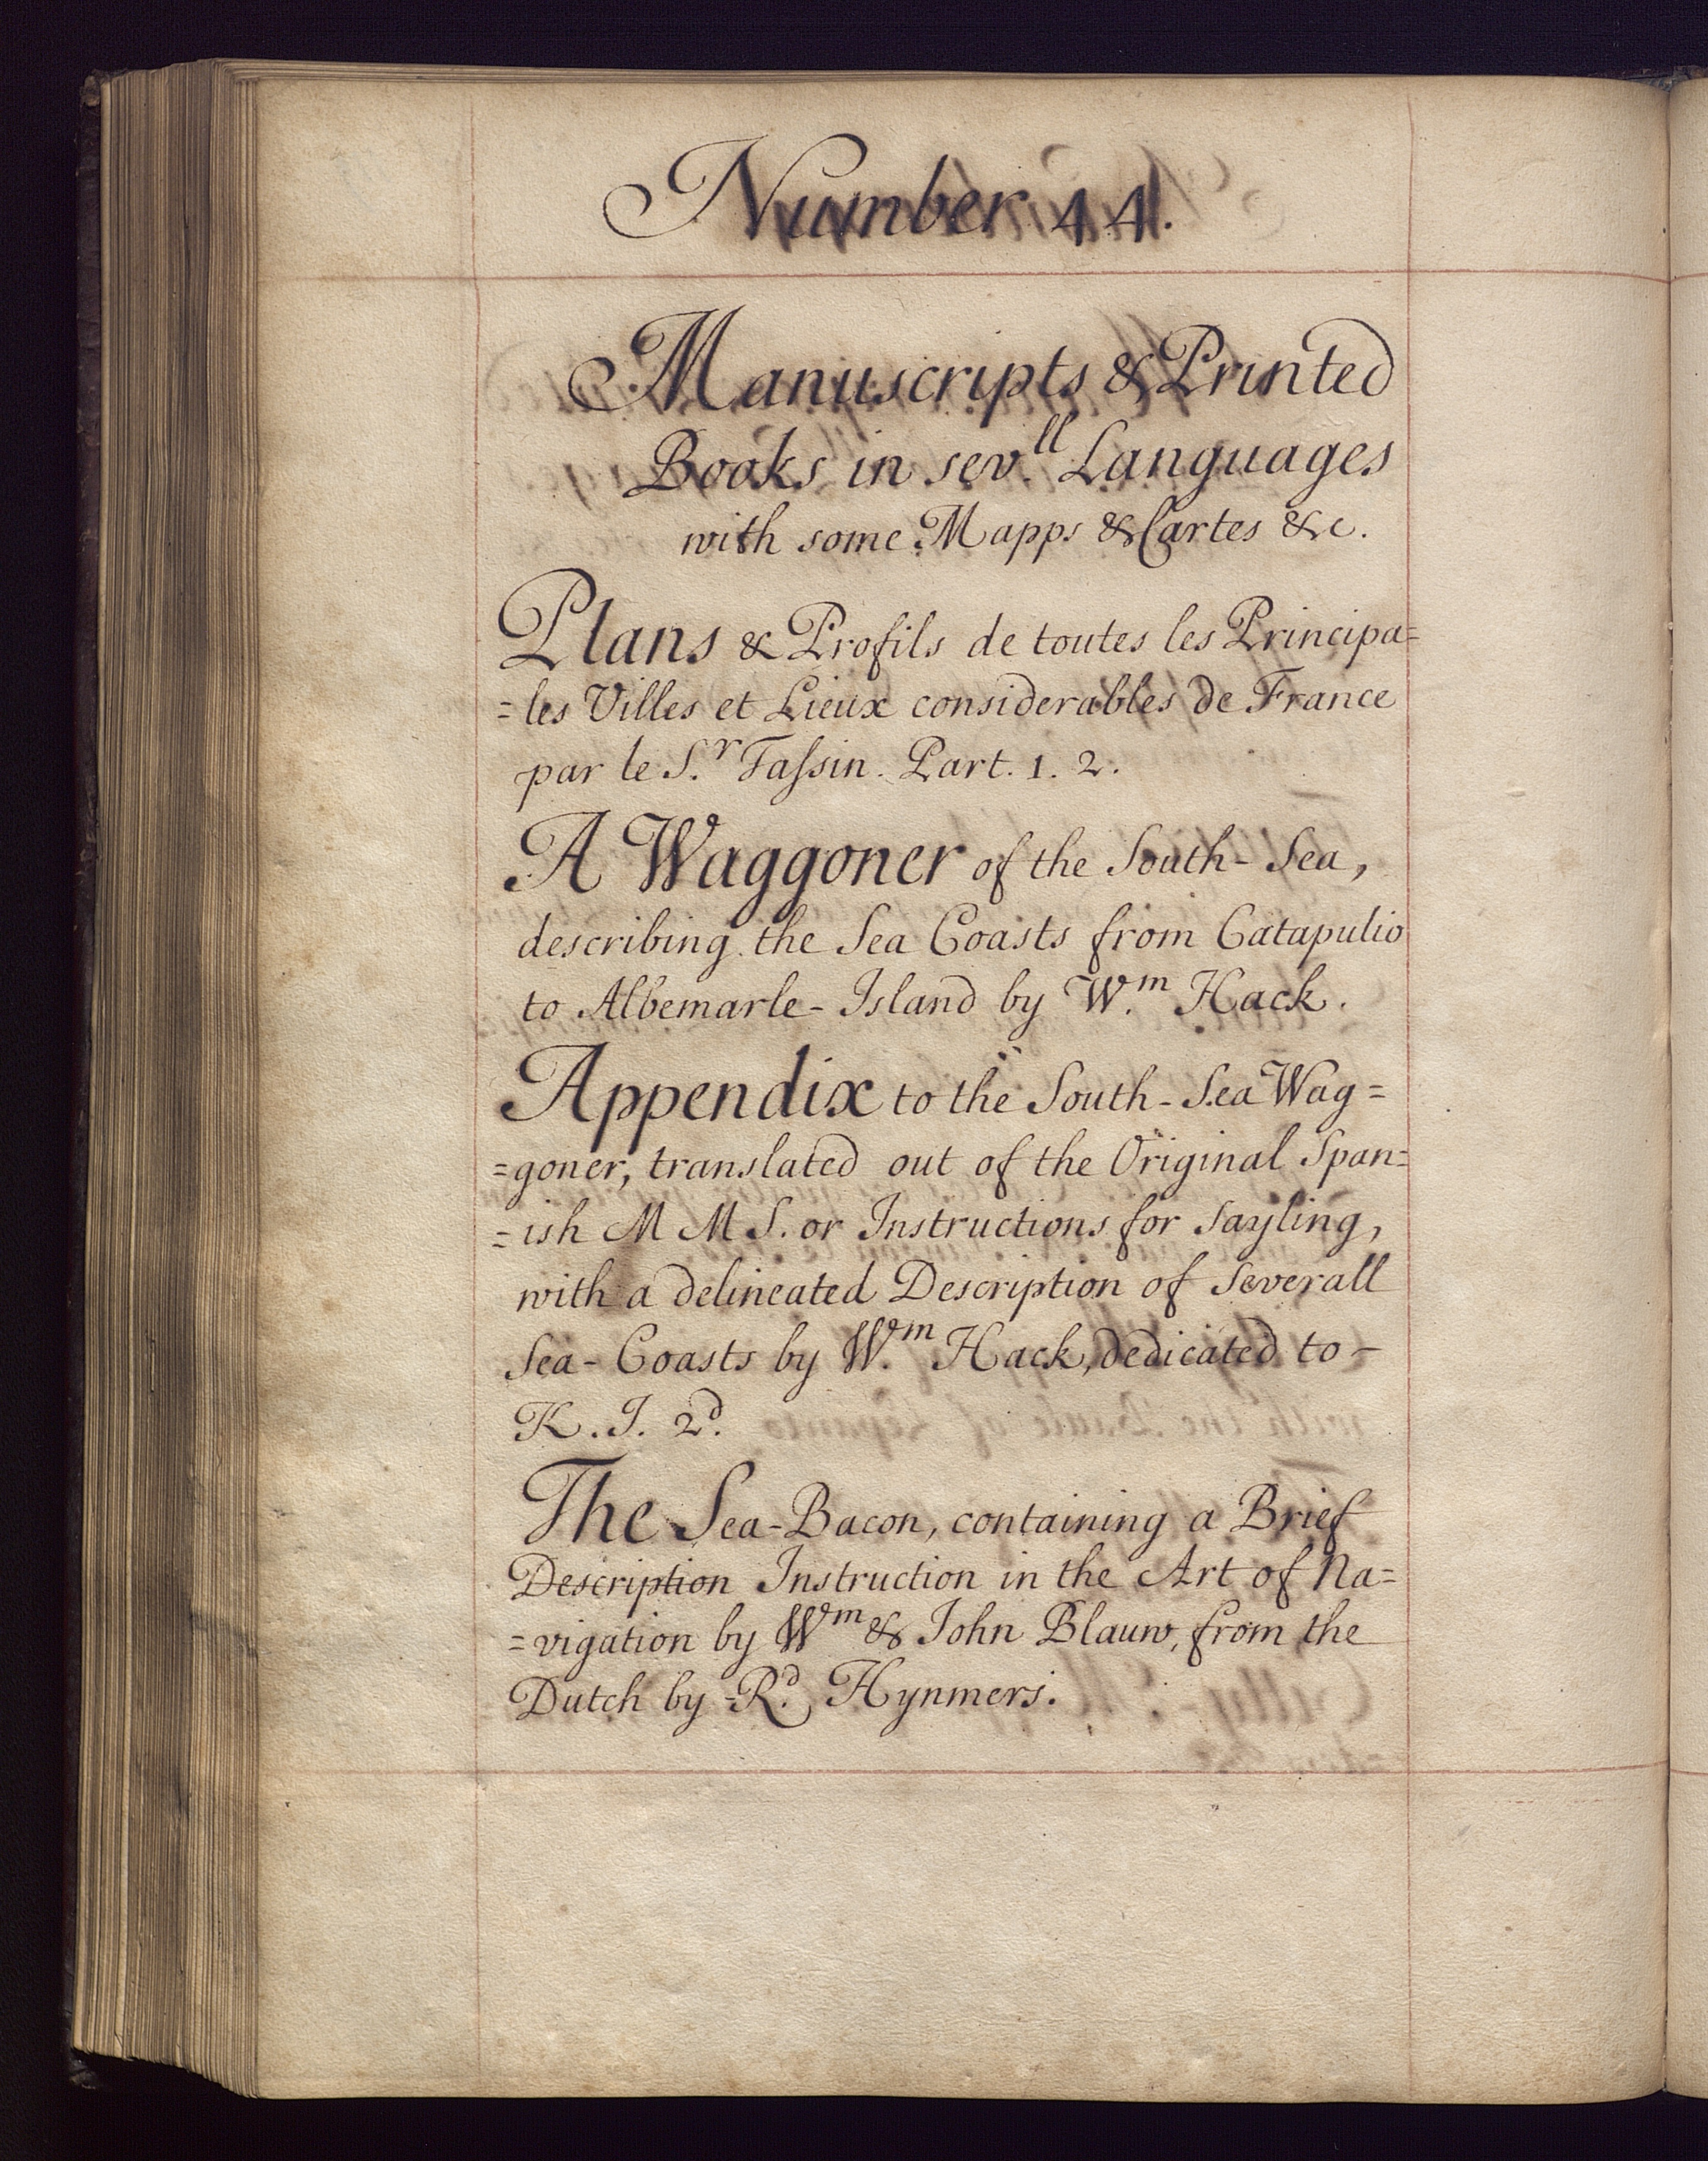 Number 44.
Manuscripts & Printed
Books in sev.ll Languages
with some Mapps & Cartes &c.
Plans & Profils de toutes les Principa=
=les Villes et Lieux considerables de France
par le S.r Taſsin. Part. 1. 2.
A Waggoner of the South-Sea,
describing the Sea Coasts from Catapulio
to Albemarle-Island by W.m Hack.
Appendix to the South-Sea Wag=
=goner, translated out of the Original Span=
=ish M M S. or Instructions for Sayling,
with a delineated Description of Severall
Sea-Coasts by W.m Hack, dedicated to-
K. J. 2d.
The Sea-Bacon, containing a Brief
Description Instruction in the Art of Na=
=vigation by Wm & John Blauw, from the
Dutch by R.d Hynmers.